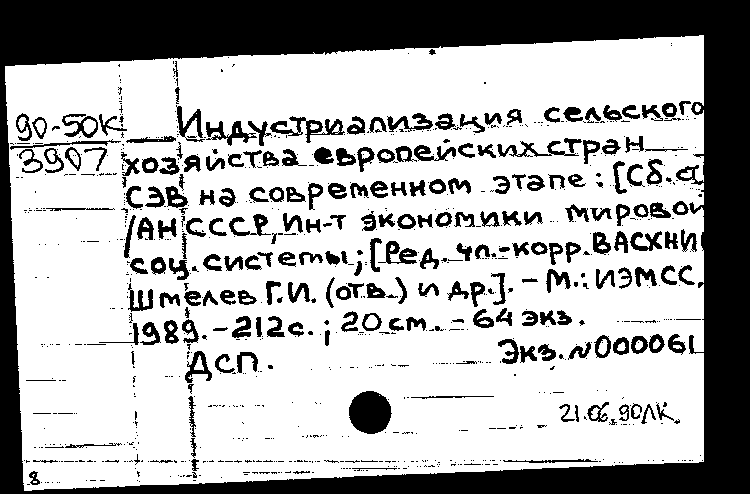 90-50К
3907
Индустриализация сельского
хозяйства европейских стран
СЭВ на современном этапе: [Сб.
/АН СССР, Ин-т экономики мировой
соц. системы; [Ред. чл.-корр. ВАСХНИ
Шмелев Г.И. (отв.) и др.]. - М.: ИЭМСС,
1989. - 212 с. ; 20 см. - 64 экз.
ДСП.
Экз. №000061
21.06.90ЛК.
8